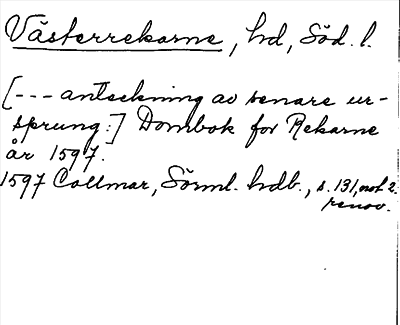 Västerrekarne, hd, Söd. l.
[--- anteckning av senare ur-
sprung:] Dombok for Rekarne
år 1597.
1597 Collmar, Sörml. hdb., s. 131, not 2.
renov.